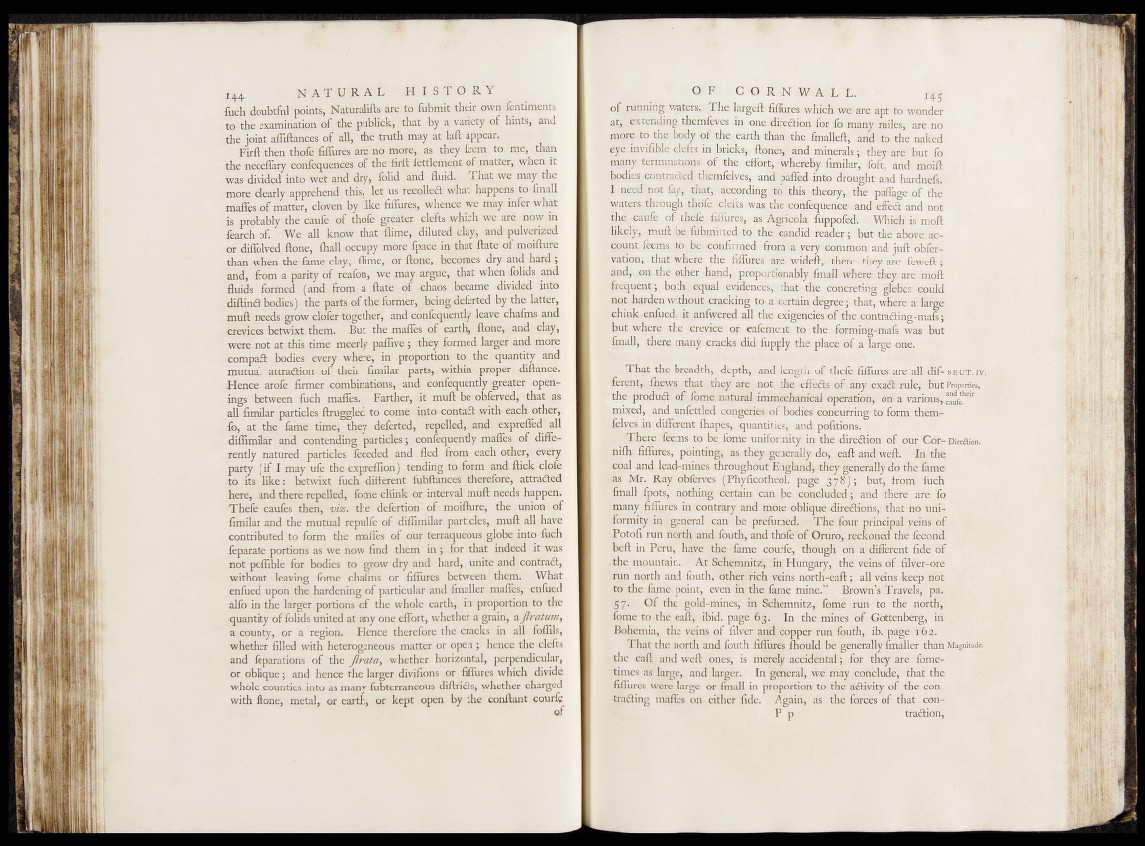 144 NATURAL HISTORY
ſuch doubtful points, Naturaliſts are to ſubmit their own ſentiments
to the examination of the publick, that by a variety of hints, and
the joint aſſiſtances of all, the truth may at laſt appear.
Firſt then thoſe fiſſures are no more, as they ſeem to me, than
the neceſſary conſequences of the firſt ſettlement of matter, when it
was divided into wet and dry, ſolid and fluid. That we may the
more clearly apprehend this, let us recollect what happens to ſmall
maſſes of matter, cloven by like fiſſures, whence we may infer what
is probably the cauſe of thoſe greater clefts which we are now in
ſearch of. We all know that ſlime, diluted clay, and pulverized
or diſſolved ſtone, ſhall occupy more ſpace in that ſtate of moiſture
than when the ſame clay, ſlime, or ſtone, becomes dry and hard;
and, from a parity of reaſon, we may argue, that when ſolids and
fluids formed (and from a ſtate of chaos became divided into
diſtinct bodies) the parts of the former, being deſerted by the latter,
muſt needs grow cloſer together, and conſequently leave chaſms and
crevices betwixt them. But the maſſes of earth, ſtone, and clay,
were not at this time meerly paſſive; they formed larger and more
compact bodies every where, in proportion to the quantity and
mutual attraction of their ſimilar parts, within proper diſtance.
Hence aroſe firmer combinations, and conſequently greater open-
ings between ſuch maſſes. Farther, it muſt be obſerved, that as
all ſimilar particles ſtruggled to come into contact with each other,
ſo, at the ſame time, they deſerted, repelled, and expreſſed all
diſſimilar and contending particles; conſequently maſſes of diffe-
rently natured particles ſeceded and fled from each other, every
party (if I may uſe the expreſſion) tending to form and ſtick cloſe
to its like: betwixt ſuch different ſubſtances therefore, attracted
here, and there repelled, ſome chink or interval muſt needs happen.
Theſe cauſes then, viz. the deſertion of moiſture, the union of
ſimilar and the mutual repulſe of diſſimilar particles, muſt all have
contributed to form the maſſes of our terraqueous globe into ſuch
ſeparate portions as we now find them in; for that indeed it was
not poſſible for bodies to grow dry and hard, unite and contract,
without leaving ſome chaſms or fiſſures between them. What
enſued upon the hardening of particular and ſmaller maſſes, enſued
alſo in the larger portions of the whole earth, in proportion to the
quantity of ſolids united at any one effort, whether a grain, a ſtratum,
a county, or a region. Hence therefore the cracks in all foſſils,
whether filled with heterogeneous matter or open; hence the clefts
and ſeparations of the ſtrata, whether horizontal, perpendicular,
or oblique; and hence the larger diviſions or fiſſures which divide
whole counties into as many ſubterraneous diſtricts, whether charged
with ſtone, metal, or earth, or kept open by the conſtant courſe
of
OF CORNWALL. 145
of running waters. The largeſt fiſſures which we are apt to wonder
at, extending themſelves in one direction for ſo many miles, are no
more to the body of the earth than the ſmalleſt, and to the naked
eye inviſible clefts in bricks, ſtones, and minerals; they are but ſo
many terminations of the effort, whereby ſimilar, ſoft, and moiſt
bodies contracted themſelves, and paſſed into drought and hardneſs.
I need not ſay, that, according to this theory, the paſſage of the
waters through thoſe clefts was the conſequence and effect and not
the cauſe of theſe fiſſures, as Agricola ſuppoſed. Which is moſt
likely, muſt be ſubmitted to the candid reader; but the above ac-
count ſeems to be confirmed from a very common and juſt obſer-
vation, that where the fiſſures are wideſt, there they are feweſt;
and, on the other hand, proportionably ſmall where they are moſt
frequent; both equal evidences, that the concreting glebes could
not harden without cracking to a certain degree; that, where a large
chink enſued, it anſwered all the exigencies of the contracting-maſs;
but where the crevice or eaſement to the forming-maſs was but
ſmall, there many cracks did ſupply the place of a large one.
That the breadth, depth, and length of theſe fiſſures are all dif- SECT. IV.
ferent, ſhews that they are not the effects of any exact rule, but Properties,
the product of ſome natural immechanical operation, on a various, and their cauſe.
mixed, and unſettled congeries of bodies concurring to form them-
ſelves in different ſhapes, quantities, and poſitions.
There ſeems to be ſome uniformity in the direction of our Cor- Direction.
niſh fiſſures, pointing, as they generally do, eaſt and weſt. In the
coal and lead-mines throughout England, they generally do the ſame
as Mr. Ray obſerves (Phyſicotheol. page 378); but, from ſuch
ſmall ſpots, nothing certain can be concluded; and there are ſo
many fiſſures in contrary and more oblique directions, that no uni-
formity in general can be preſumed. The four principal veins of
Potoſi run north and ſouth, and thoſe of Oruro, reckoned the ſecond
beſt in Peru, have the ſame courſe, though on a different ſide of
the mountain. At Schemnitz, in Hungary, the veins of ſilver-ore
run north and ſouth, other rich veins north-eaſt; all veins keep not
to the ſame point, even in the ſame mine." Brown's Travels, pa.
57. Of the gold-mines, in Schemnitz, ſome run to the north,
ſome to the eaſt, ibid. page 63. In the mines of Gottenberg, in
Bohemia, the veins of ſilver and copper run ſouth, ib. page 162.
That the north and ſouth fiſſures ſhould be generally ſmaller than Magnitude.
the eaſt and weſt ones, is merely accidental; for they are ſome-
times as large, and larger. In general, we may conclude, that the
fiſſures were large or ſmall in proportion to the activity of the con
tracting maſſes on either ſide. Again, as the forces of that con-
P p traction,